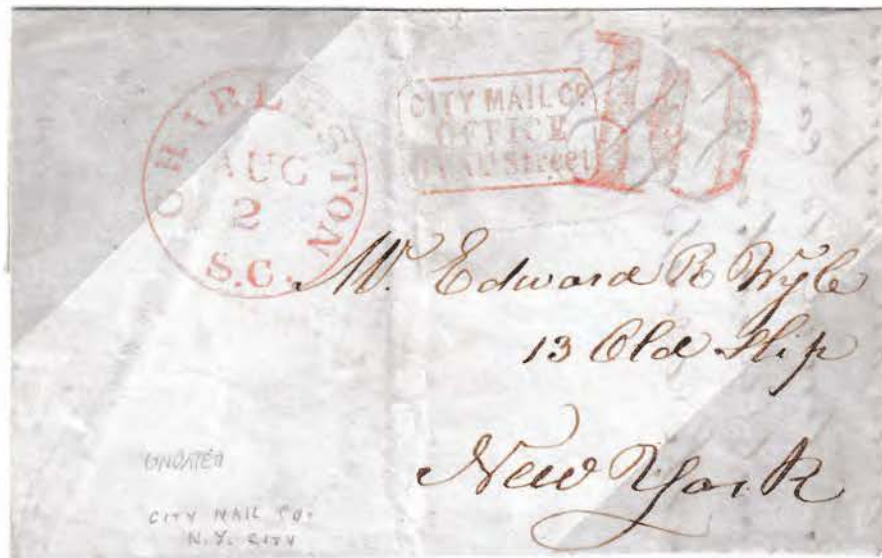 CHARLESTON
AUG
2
S.C.
CITY MAIL CO.
OFFICE
Street
10
Mr. Edward R Wyle
13 Old Slip
New York
UNDATED
CITY MAIL CO.
N.Y. CITY